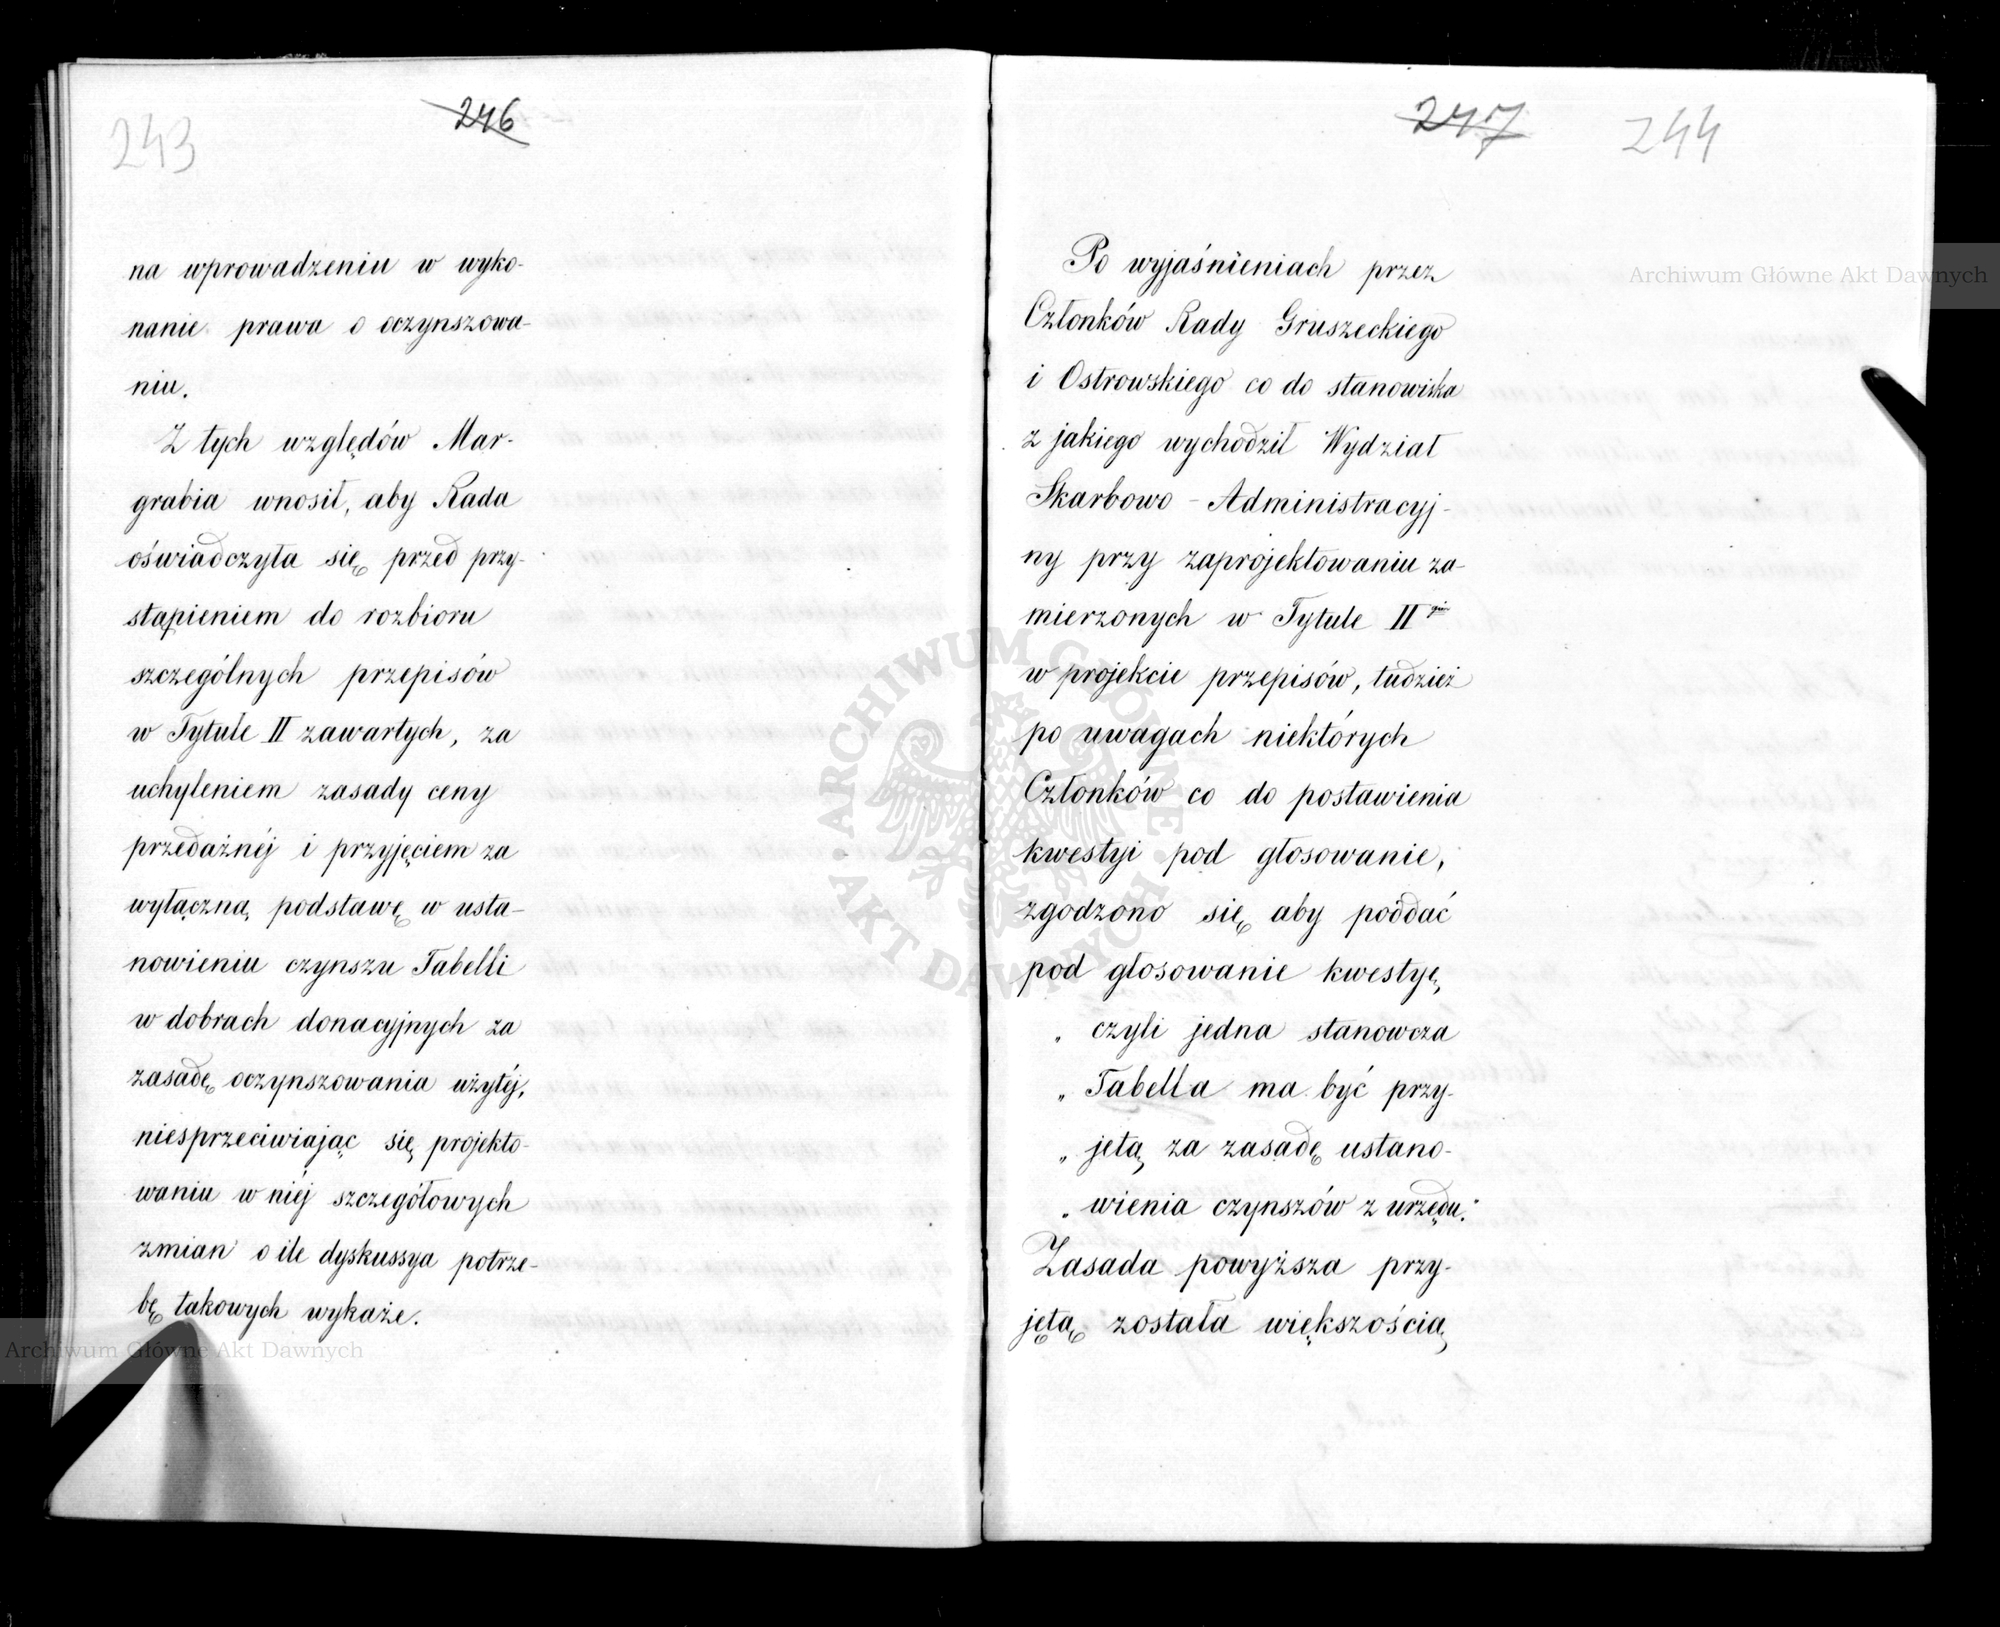 243
246
na wprowadzeniu w wyko-
nanie prawa o oczynszowa-
niu.
Z tych względów Mar-
grabia wnosił, aby Rada
oświadczyła się przed przy-
stąpieniem do rozbioru
szczególnych przepisów
w Tytule II zawartych, za
uchyleniem zasady ceny
przedażnéj i przyjęciem za
wyłączną podstawę w usta-
nowieniu czynszu Tabelli
w dobrach donacyjnych za
zasadę oczynszowania użytéj,
niesprzeciwiając się projekto-
waniu w niéj szczegółowych
zmian o ile dyskussya potrze-
bę takowych wykaże.
247
244
Po wyjaśnieniach przez
Członków Rady Gruszeckiego
i Ostrowskiego co do stanowiska
z jakiego wychodził Wydział
Skarbowo-Administracyj-
ny przy zaprojektowaniu za-
mierzonych w Tytule II gim
w projekcie przepisów, tudzież
po uwagach niektórych
Członków co do postawienia
kwestyi pod głosowanie,
zgodzono się aby poddać
pod głosowanie kwestyę,
„ czyli jedna stanowcza
„ Tabella ma być przy-
„ jętą za zasadę ustano-
„ wienia czynszów z urzędu."
Zasada powyższa przy-
jętą została większością
Archiwum Główne Akt Dawnych
Archiwum Główne Akt Dawnych
ARCHIWUM GŁÓWNE
AKT DAWNYCH